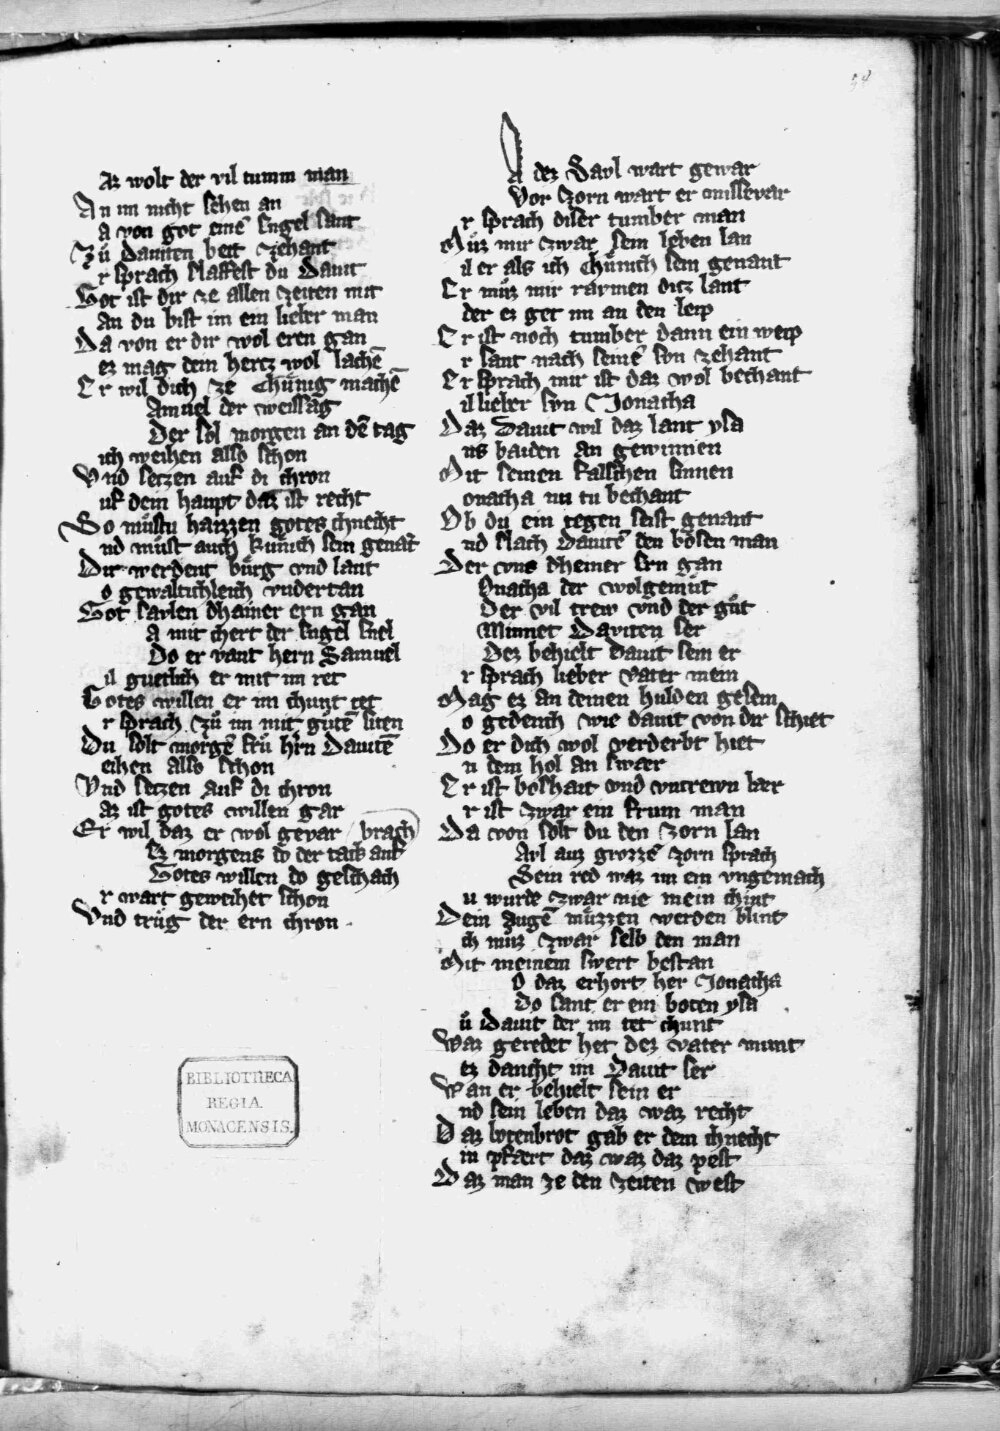 58
Az wolt der vil tumm man
An im nicht sehen an
a von got eine͞ Engel sant
Zuͦ dauiten bett zehant
r sprach slaffest du Dauit
Got ist dir ze allen zeiten mit
An du bist im ein lieber man
Da von er dir wol eren gan
ez mag dein hercz wol lache͞
Er wil dich ze chuͤnig mache͞
Amuel der weissag
Der sol morgen an de͞ tag
ich weihen also schon
Vnd seczen auf di chron
uf dem haupt daz ist recht
So muͤstu haizzen gotes chnecht
nd muͤst auch kuͤnich sein genāt
Dir werdent buͤrg vnd lant
o gewaltichleich vndertan
Got sawlen dhainer ern gan
a mit chert der Engel snel
Do er vant hern Samuel
il guetlich er mit im ret
Gotes willen er im chunt tet
r sprach zuͦ im mit guͤte͞ siten
Du solt morge͞ fruͤ h͛rn Dauite͞
eihen also schon
Vnd seczen auf di chron
az ist gotes willen gar
Er wil daz er wol gevar
brach
Ez morgens do der tack auf
Gotes willen do geschach
r wart geweihet schon
Vnd truͤg der ern chron
BIBLIOTHECA
REGIA
MONACENSIS.
A dez Savl wart gewar
Vor zorn wart er missevar
r sprach diser tumber man
Muͤz mir zwar sein leben lan
il er als ich chuͤnich sein genant
Er muͤz mir raymen dicz lant
der ez get im an den leip
Er ist noch tumber dann ein weip
r sant nach seine͞ svn zehant
Er sprach mir ist daz wol bechant
il lieber svn Jonacha
Daz Dauit wil daz lant ysa
ns baiden an gewinnen
Mit seinen falschen sinnen
onacha nu tu bechant
Ob du ein tegen seist genant
nd slach Dauite͞ den boͤsen man
Der vns dheiner ern gan
Onacha der wolgemuͤt
Der vil trew vnd der guͤt
Minnet Daviten ser
Dez behielt Dauit sein er
r sprach lieber vater mein
Mag ez an deinen hulden gesein
o gedench wie dauit von dir schiet
Do er dich wol verderbt hiet
n dem hol an swaer
Er ist boshait vnd vntrewn laer
r ist zwar ein frum man
Da von solt du den zorn lan
Avl auz grozze͞ zorn sprach
Sein red waz im ein vngemach
u wurde zwar nie mein chint
Dein auge͞ muͤzzen werden blint
ch muͤz zwar selb den man
Mit meinem swert bestan
o daz erhort her Jonacha
Do sant er ein boten ysa
uͦ Dauit der im tet chunt
Waz geredet het dez vater munt
ez dancht im Dauit ser
Wan er behielt sein er
nd sein leben daz waz recht
Daz botenbrot gab er dem chnecht
in pfaert daz waz daz pest
Daz man ze den zeiten west